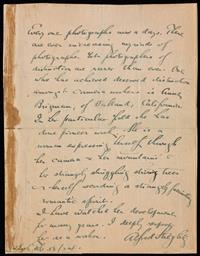 Every one photographs now a days. There
are ever increasing myriads of
photographs. Yet photographers of
distinction are rarer than ever. One
who has achieved deserved distinction
amongst camera workers is Annie
Brigman, of Oakland, California.
In her particular field she has
done pioneer work. She is a
woman expressing herself through
her camera & her mountains &
her strangely struggling
herself revealing a strangely
romantic spirit.
I have watched her development
for many years. I deeply respect
her as a worker.
Alfred Stieglitz